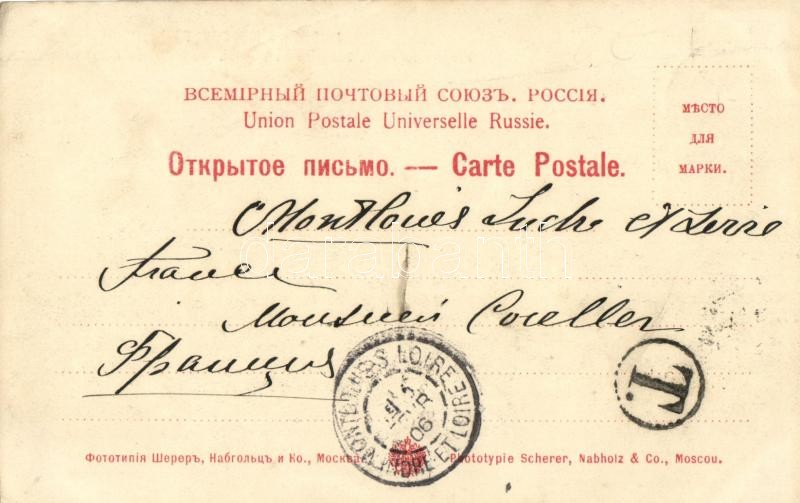 ВСЕМІРНЫЙ ПОЧТОВЫЙ СОЮЗЪ. РОССІЯ.
Union Postale Universelle Russie.
Открытое письмо. — Carte Postale.
МѢСТО
ДЛЯ
МАРКИ.
Montlouis Indre et Loire
France
Monsieur
Франція
LOIRE
INDRE ET LOIRE
06
T
Darabanth
Фототипія Шереръ, Набгольцъ и Ко., Москва.
Phototypie Scherer, Nabholz & Co., Moscou.